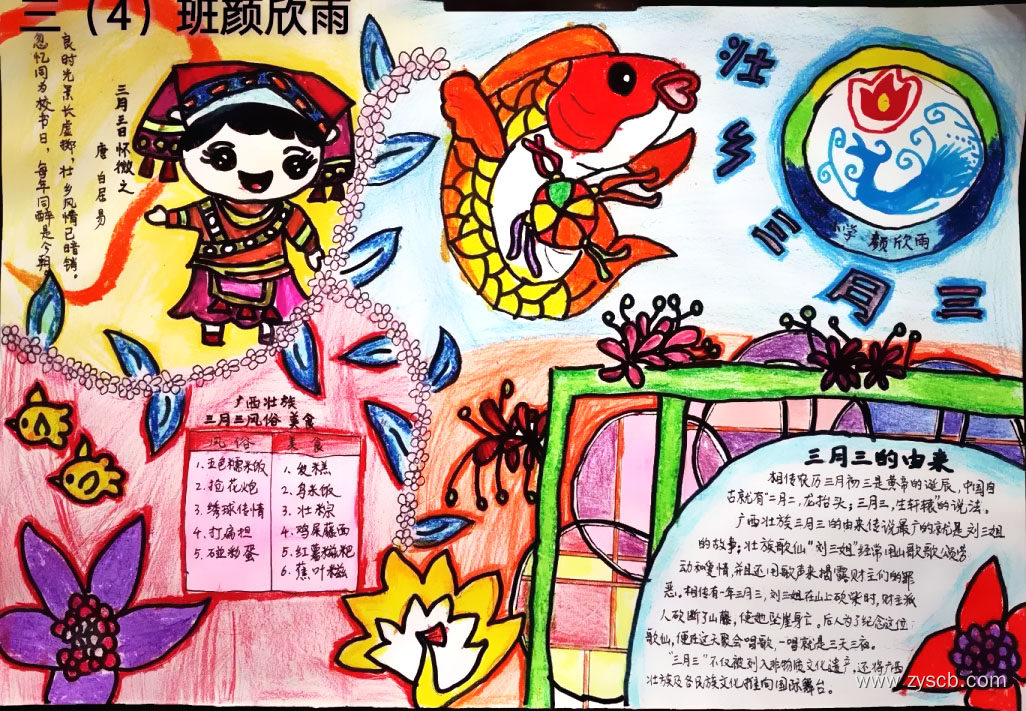 三（4）班颜欣雨
三月三日怀微之
唐 白居易
良时光景长虚掷，壮乡风情已暗销。
忽忆同为校书日，每年同醉是今朝。
壮乡三月三
小学 颜欣雨
广西壮族
三月三风俗美食
风俗 美食
1. 五色糯米饭 1. 发糕
2. 抢花炮 2. 乌米饭
3. 绣球传情 3. 壮粽
4. 打扁担 4. 鸡屎藤面
5. 碰彩蛋 5. 红薯糍粑
6. 蕉叶糍
三月三的由来
相传农历三月初三是黄帝的诞辰，中国自
古就有“二月二，龙抬头；三月三，生轩辕”的说法。
广西壮族三月三的由来传说最广的就是刘三姐
的故事；壮族歌仙“刘三姐”经常用山歌歌颂劳
动和爱情，并且还用歌声来揭露财主们的罪
恶。相传有一年三月三，刘三姐在山上砍柴时，财主派
人砍断了山藤，使她坠崖身亡。后人为了纪念这位
歌仙，便在这天聚会唱歌，一唱就是三天三夜。
“三月三”不仅被列入非物质文化遗产，还将广西
壮族及各民族文化推向国际舞台。
www.zyscb.com